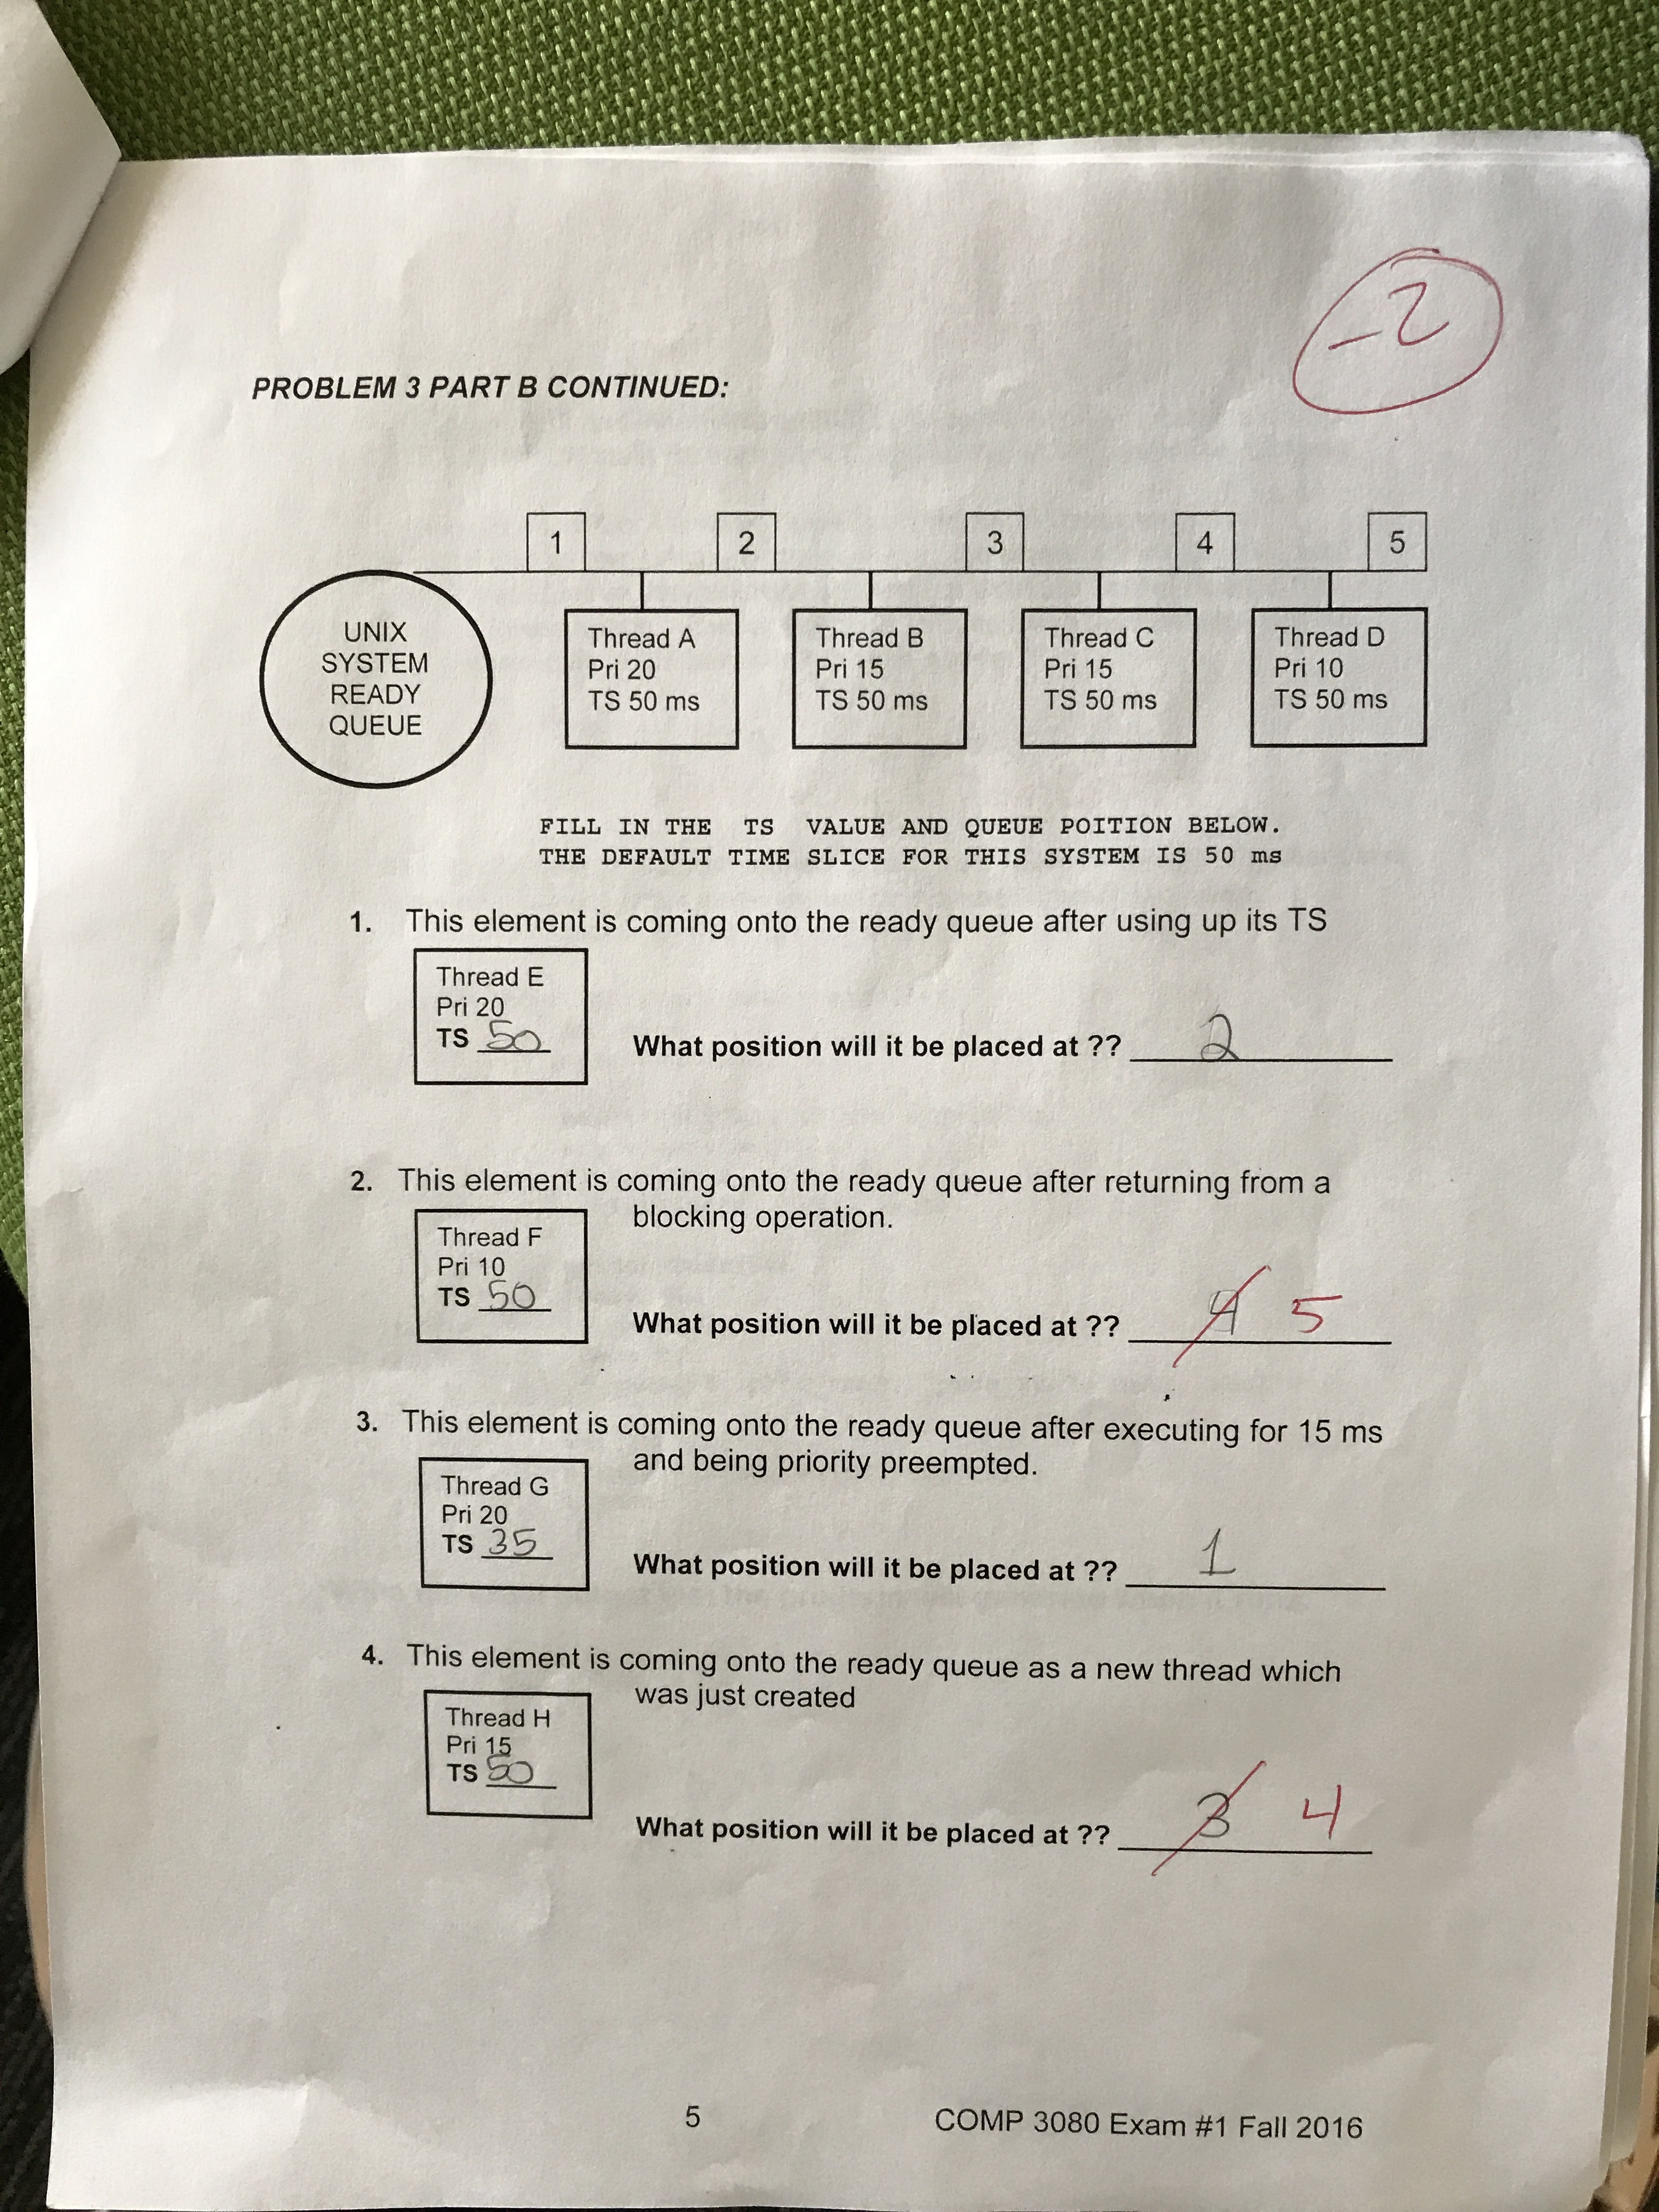 -2
PROBLEM 3 PART B CONTINUED:
1 2 3 4 5
UNIX
SYSTEM
READY
QUEUE
Thread A
Pri 20
TS 50 ms
Thread B
Pri 15
TS 50 ms
Thread C
Pri 15
TS 50 ms
Thread D
Pri 10
TS 50 ms
FILL IN THE TS VALUE AND QUEUE POITION BELOW.
THE DEFAULT TIME SLICE FOR THIS SYSTEM IS 50 ms
1. This element is coming onto the ready queue after using up its TS
Thread E
Pri 20
TS 50
What position will it be placed at ?? 2
2. This element is coming onto the ready queue after returning from a
blocking operation.
Thread F
Pri 10
TS 50
What position will it be placed at ?? 4 5
3. This element is coming onto the ready queue after executing for 15 ms
and being priority preempted.
Thread G
Pri 20
TS 35
What position will it be placed at ?? 1
4. This element is coming onto the ready queue as a new thread which
was just created
Thread H
Pri 15
TS 50
What position will it be placed at ?? 3 4
5
COMP 3080 Exam #1 Fall 2016